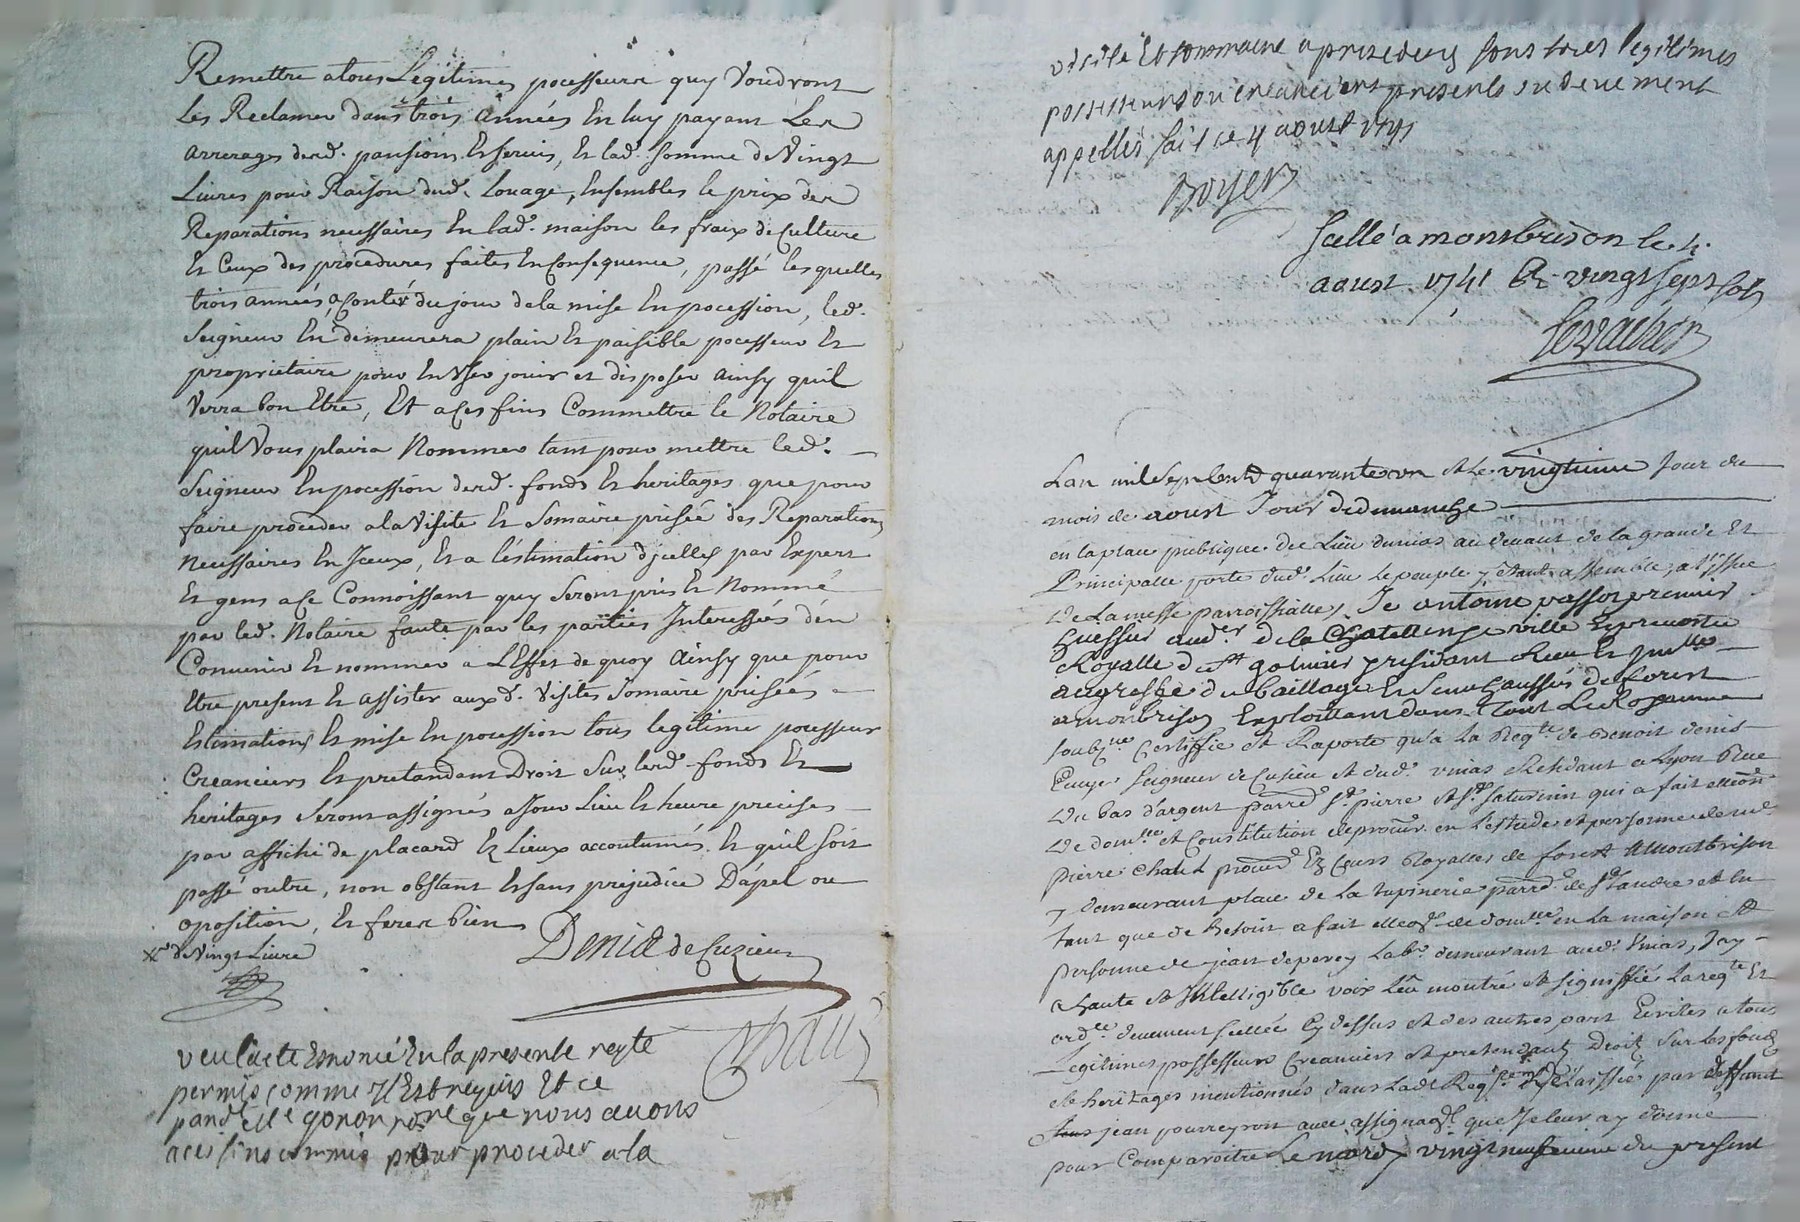 Remettre atous Legitimes pocesseurs quy Voudront
Les Reclamer dans trois années En luy payant Les
arrerages desd. pansions Et servis, Et lad. somme de Vingt
Livres pour Raison dud. Louage, Ensembles le prix des
Reparations necessaires En lad. maison les fraix de Culture
Et Ceux des procedures faites En Consequence, passé lesquelles
trois années a Conter du jour de la mise En pocession, led.
Seigneur En demeurera plain Et paisible pocesseur Et
proprietaire pour En User jouir et disposer ainsy quil
Verra bon Etre, Et a Ces fins Commettre le Notaire
quil Vous plaira Nommer tant pour mettre led.
Seigneur En pocession desd. fonds Et heritages que pour
faire proceder a la Visite Et Somaire prisée des Reparations
Necessaires En Iceux, Et a l'estimation d'jcelles par Expert
Et gens a Ce Connoissant quy Seront pris Et Nommé
par led. Notaire faute par les parties Interessées d'en
Convenir Et nommer a L'Effet de quoy ainsy que pour
Etre present Et assister auxd. Visites Somaire prisées
Estimations Et mise En pocession tous legitime pocesseur
Creanciers Et pretandant Droit Sur lesd. fonds Et
heritages Seront assignés a Jour Lieu Et heure precises
par affiche de placard Ez Lieux accoutumés. Et quil soit
passé outre, non obstant Et sans prejudice D'apel ou
oposition, Et ferez bien
de Vingt Livre
Denis de Cuzieu
Chaul
veu l'acte Enoncé En la presente reqte
permis comme Il Est requis Et ce
pand. Me gonon nore que nous avons
a ces fins commis pour proceder a la
visite Et sommaire aprisedeux sous tous legitimes
possesseurs ou creanciers presents ou deuement
appellés fait ce 4 aoust 1741
Boyer
Scellé a montbrison le 4.
aoust 1741 R. vingt sept sols
Levacher
Lan mil Sept Cents quarante un et le vingtieme Jour du
mois de aoust Jour de dimanche
en la place publique du Lieu dunias au devant de la grande Et
Principalle porte dud. Lieu le peuple y Etant assemblé, a l'Issue
de La messe parroissialle, Je antoine passot premier
huessier aud.er de la Chatellenye ville Et prevosté
Royalle de St galmier residant
au greffe du baillage Et Senechaussée de forest
a monbrison Exploittant dans Tout Le Royaume
soubsne Certiffie et Raporte qu'a La Reqte de Benoit denis
Ecuyer Seigneur de Cusieu et dud. unias Residant a Lyon Rue
du bas d'argent parred St pierre et St saturnin qui a fait ellection
de domlle et Constitution de procur. en L'estude et personne de me
pierre Chaul procur. Ez Cours Royalles de forest a Montbrison
y demeurant place de La tupinerie parred. de St andre et En
tant que de besoin a fait ellecon de domlle en La maison et
personne de jean deperey Labr. demeurant aud. Unias, Jay
a haute et Intelligible voix Leu montré et signiffié La reqte Et
ordce deuement scellée Cy dessus et des autres part Ecrites a tous
Legitimes possesseurs Creanciers et pretendants Droits Sur Les fonds
et heritages mentionnés dans Lade Reqte delaissées par deffunt
jean pourreyron avec assignaon que Je leur ay donné
pour Comparoitre Le mardy vingt neufvieme du present